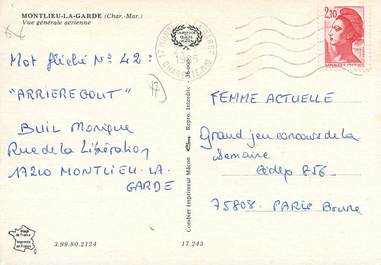 MONTLIEU-LA-GARDE (Char.-Mar.)
Vue générale aérienne
Mot fléché N° 42 :
"ARRIERE GOUT"
BUIL Monique
Rue de la Libération
17210 MONTLIEU-LA-
GARDE
17
3.99.80.2124
17.243
Combier Imprimeur Mâcon
Repro. Interdite
2,10
FEMME ACTUELLE
Grand jeu concours de la
Semaine
Cedex 856
75808 PARIS Brune